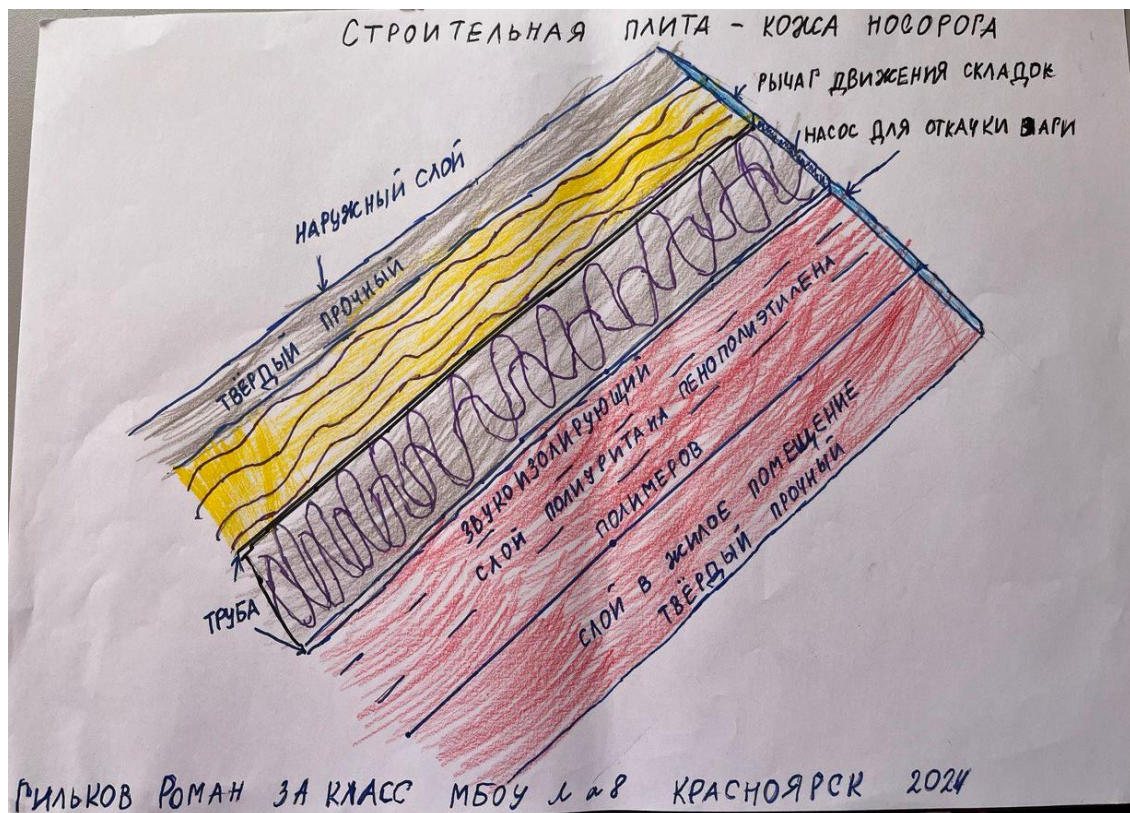 СТРОИТЕЛЬНАЯ ПЛИТА - КОЖА НОСОРОГА
РЫЧАГ ДВИЖЕНИЯ СКЛАДОК
НАСОС ДЛЯ ОТКАЧКИ ВЛАГИ
НАРУЖНЫЙ СЛОЙ
ТВЁРДЫЙ ПРОЧНЫЙ
ЗВУКОИЗОЛИРУЮЩИЙ
СЛОЙ ПОЛИУРИТАНА ПЕНОПОЛИЭТИЛЕНА
ПОЛИМЕРОВ
СЛОЙ В ЖИЛОЕ ПОМЕЩЕНИЕ
ТВЁРДЫЙ ПРОЧНЫЙ
ТРУБА
ГИЛЬКОВ РОМАН 3А КЛАСС МБОУ КРАСНОЯРСК 2024